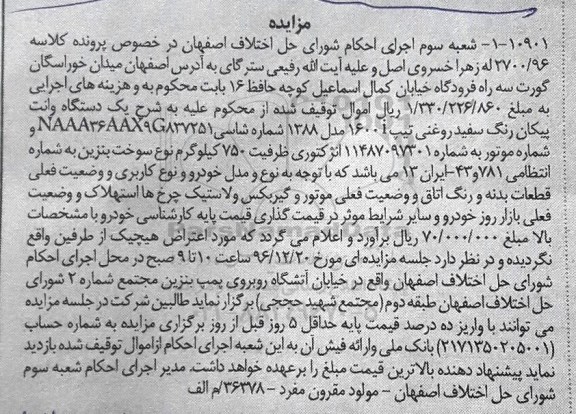 مزایده
۱-۱۰۹۰۱- شعبه سوم اجرای احکام شورای حل اختلاف اصفهان در خصوص پرونده کلاسه
۲۷۰۰/۹۶ له زهرا خسروی اصل و علیه آیت الله رفیعی سترگای به آدرس اصفهان میدان خوراسگان
گورت سه راه فرودگاه خیابان کمال اسماعیل کوچه حافظ ۱۶ بابت محکوم به و هزینه های اجرایی
به مبلغ ۱/۳۳۰/۲۲۶/۸۶۰ ریال اموال توقیف شده از محکوم علیه به شرح یک دستگاه وانت
پیکان رنگ سفید روغنی تیپ ۱۶۰۰i مدل ۱۳۸۸ شماره شاسی NAAA۳۶AAX۹G۸۳۷۲۵۱ و
شماره موتور به شماره ۱۱۴۸۷۰۹۷۳۰۱ انژکتوری ظرفیت ۷۵۰ کیلوگرم نوع سوخت بنزین به شماره
انتظامی ۷۸۱و۴۳-ایران ۱۳ می باشد که با توجه به نوع و مدل خودرو و نوع کاربری و وضعیت فعلی
قطعات بدنه و رنگ اتاق و وضعیت فعلی موتور و گیربکس ولاستیک چرخ ها استهلاک و وضعیت
فعلی بازار روز خودرو و سایر شرایط موثر در قیمت گذاری قیمت پایه کارشناسی خودرو با مشخصات
بالا مبلغ ۷۰/۰۰۰/۰۰۰ ریال برآورد و اعلام می گردد که مورد اعتراض هیچیک از طرفین واقع
نگردیده و در نظر دارد جلسه مزایده ای مورخ ۹۶/۱۲/۲۰ ساعت ۱۰ تا ۹ صبح در محل اجرای احکام
شورای حل اختلاف اصفهان واقع در خیابان آتشگاه روبروی پمپ بنزین مجتمع شماره ۲ شورای
حل اختلاف اصفهان طبقه دوم (مجتمع شهید حججی) برگزار نماید طالبین شرکت در جلسه مزایده
می توانند با واریز ده درصد قیمت پایه حداقل ۵ روز قبل از روز برگزاری مزایده به شماره حساب
(۲۱۷۱۳۵۰۲۰۵۰۰۱) بانک ملی وارائه فیش آن به این شعبه اجرای احکام ازاموال توقیف شده بازدید
نماید پیشنهاد دهنده بالاترین قیمت مبلغ را برعهده خواهد داشت. مدیر اجرای احکام شعبه سوم
شورای حل اختلاف اصفهان - مولود مقرون مفرد - ۳۶۳۷۸/م الف